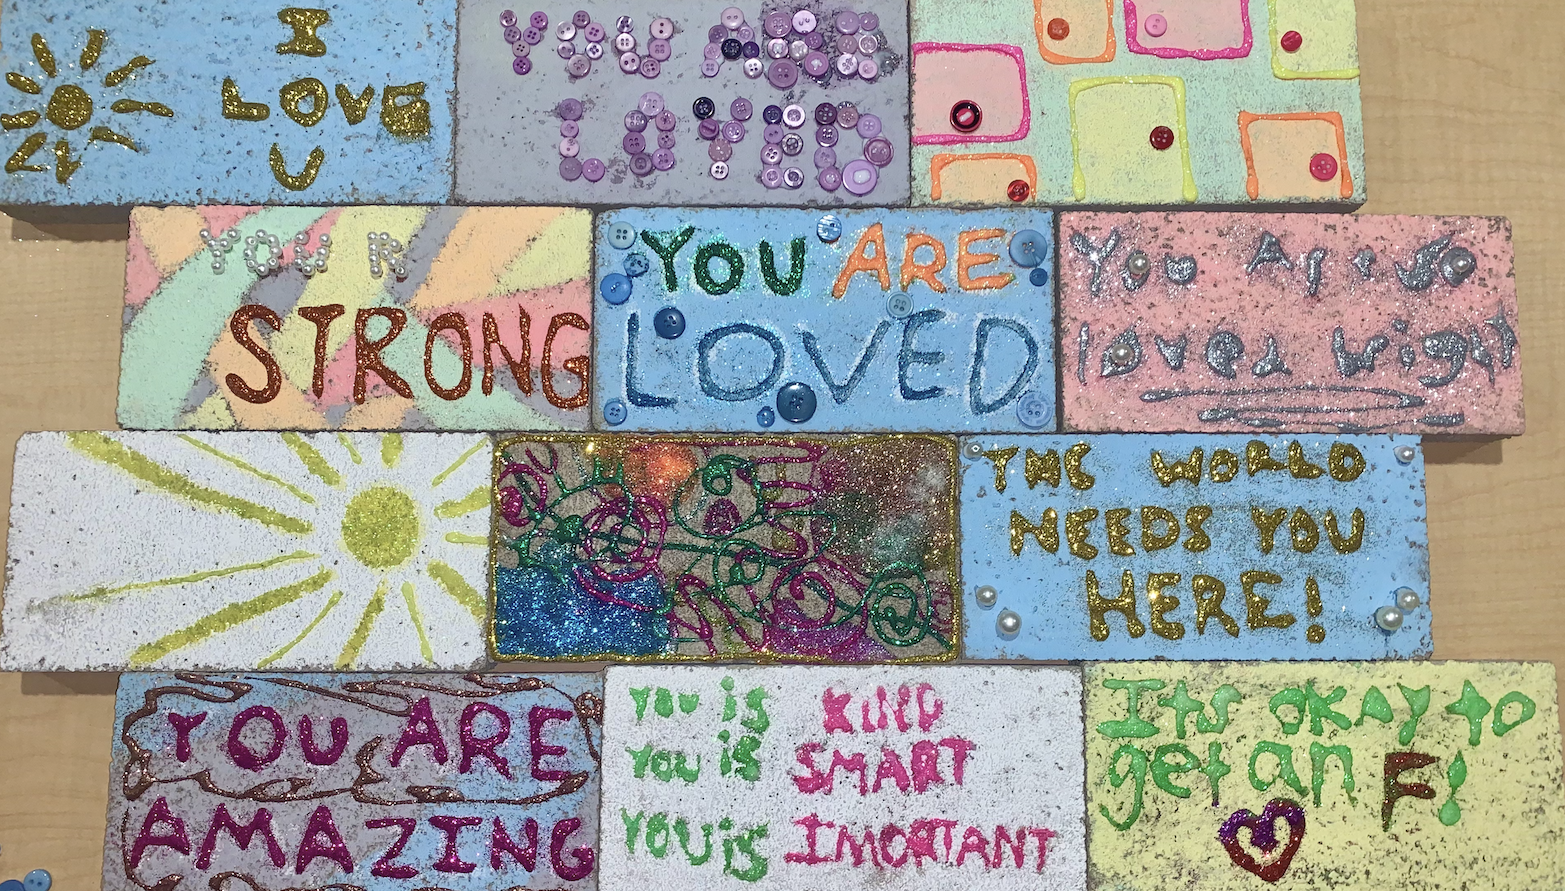 I
LOVE
U
YOU ARE
LOVED
YOU R
STRONG
YOU ARE
LOVED
You Are so
loved wight
THE WORLD
NEEDS YOU
HERE!
YOU ARE
AMAZING
You is KIND
You is SMART
YOU is IMORTANT
Its OKAY to
get an F!